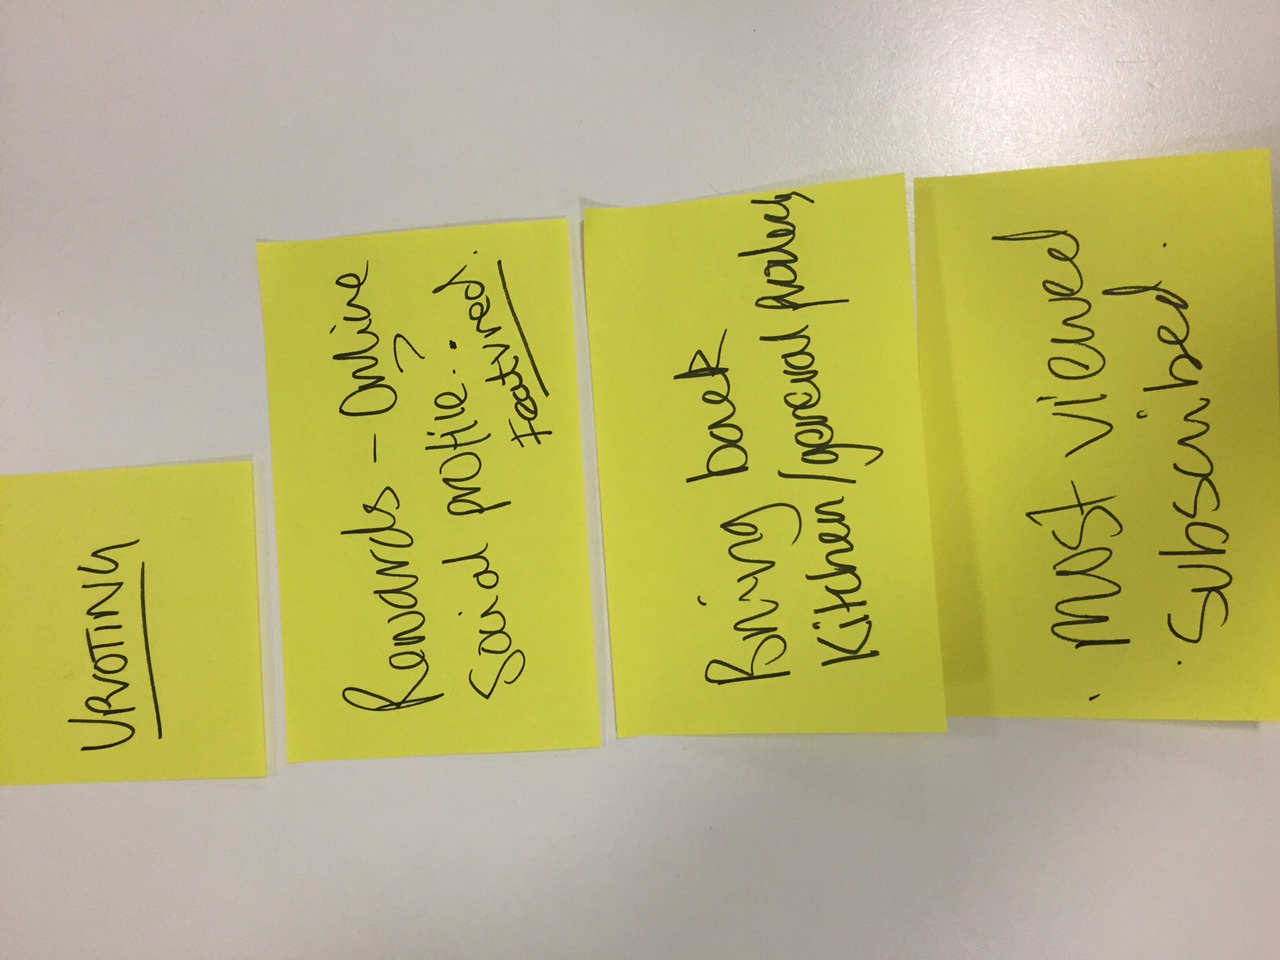 UPVOTING
Rewards – Online
Social profile.?
Featured.
Bring back
Kitchen/general products
· most viewed
· Subscribed.